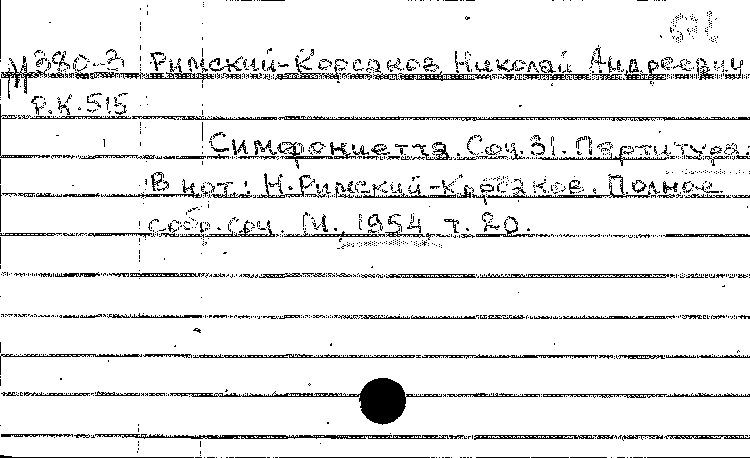 М380-3 Римский-Корсаков Николай Андреевич
Р.К.515
Симфониетта. Соч. 31. Партитура.
В нот.: Н. Римский-Корсаков. Полное
собр. соч. М., 1954, т. 20.